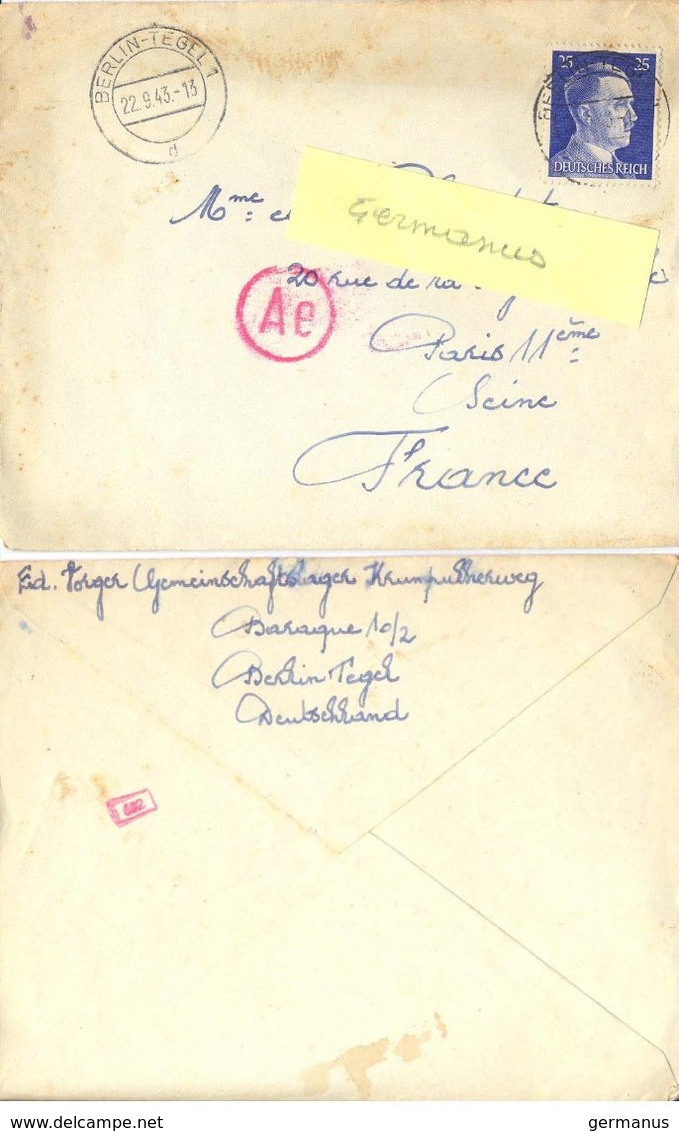 BERLIN-TEGEL 1
22.9.43.-13
d
25 25
DEUTSCHES REICH
Mme
Germanus
20 rue de la
Ae
Paris 11ème
Seine
France
Ed. Torger Gemeinschaftslager
Baraque 10/2
Berlin Tegel
Deutschland
delcampe.net
germanus